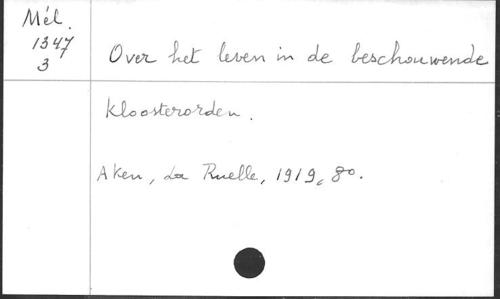 Mél.
1347
3
Over het leven in de beschouwende
Kloosterorden.
Aken, La Ruelle, 1919, 8o.